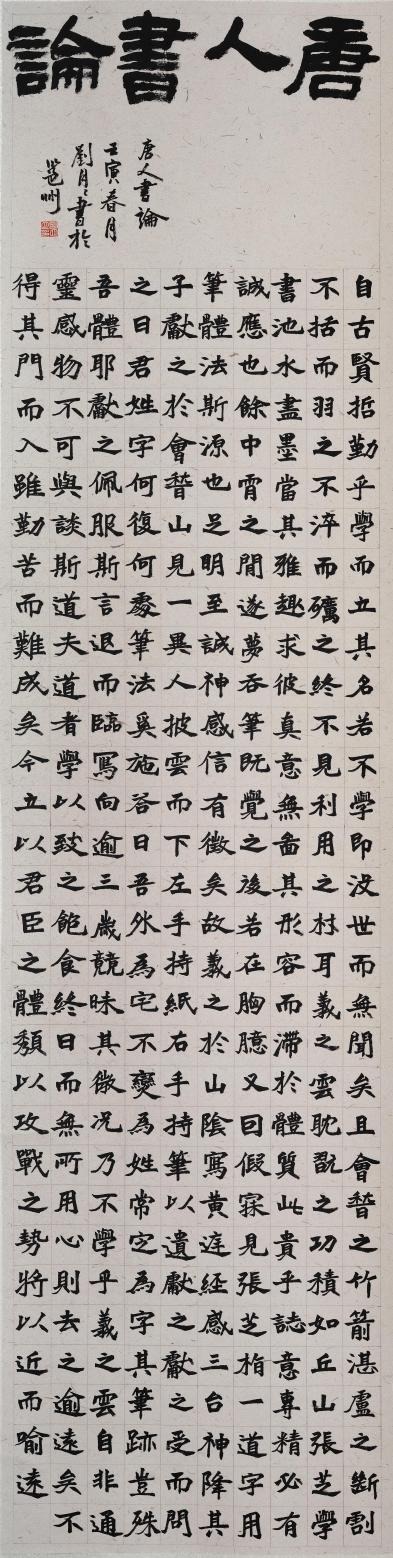 唐人書論
唐人書論
壬寅春月
劉月〻書於
邕州
自古賢哲勤乎學而立其名若不學即没世而無聞矣且會稽之竹箭湛盧之斷割
不括而羽之不淬而礪之終不見利用之材耳義之雲耽翫之功積如丘山張芝學
書池水盡墨當其雅趣求彼真意無啚其形容而滯於體質此貴乎誌意專精必有
誠應也餘中霄之間遂夢吞筆既覺之後若在胸臆又曰假寐見張芝指一道字用
筆體法斯源也足明至誠神感信有徵矣故義之於山陰寫黄庭經感三台神降其
子獻之於會稽山見一異人披雲而下左手持紙右手持筆以遺獻之獻之受而問
之曰君姓字何復何處筆法奚施答曰吾外為宅不變為姓常定為字其筆跡豈殊
吾體耶獻之佩服斯言退而臨寫向逾三歲競昧其微况乃不學乎義之雲自非通
靈感物不可與談斯道夫道者學以致之飽食終日而無所用心則去之逾遠矣不
得其門而入雖勤苦而難成矣今立以君臣之體類以攻戰之勢將以近而喻遠